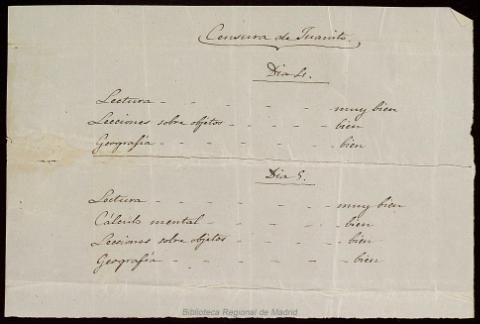 Censura de Juanito.
Dia 4.
Lectura - - - - - muy bien
Lecciones sobre objetos - - - - bien
Geografía - - - - - - bien
Dia 5.
Lectura - - - - - muy bien
Cálculo mental - - - - bien
Lecciones sobre objetos - - - - bien
Geografía - - - - - - bien
Biblioteca Regional de Madrid